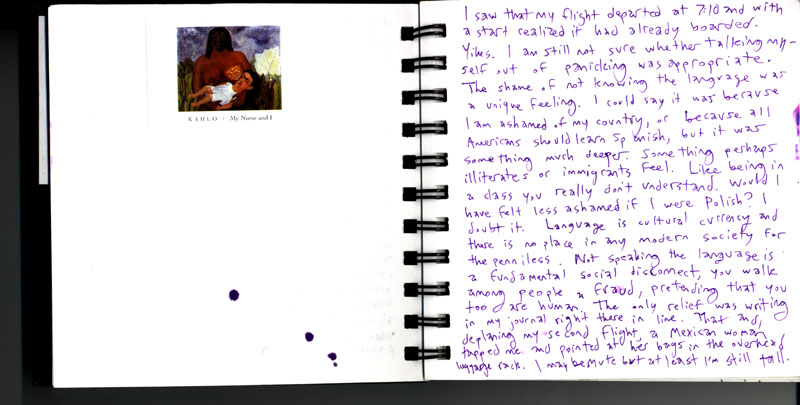 KAHLO / My Nurse and I
I saw that my flight departed at 7:10 and with
a start realized it had already boarded.
Yikes. I am still not sure whether talking my-
self out of panicking was appropriate.
The shame of not knowing the language was
a unique feeling. I could say it was because
I am ashamed of my country, or because all
Americans should learn Spanish, but it was
something much deeper. Something perhaps
illiterates or immigrants feel. Like being in
a class you really don't understand. Would I
have felt less ashamed if I were Polish? I
doubt it. Language is cultural currency and
there is no place in any modern society for
the penniless. Not speaking the language is
a fundamental social disconnect, you walk
among people a fraud, pretending that you
too are human. The only relief was writing
in my journal right there in line. That and,
deplaning my second flight, a Mexican woman
tapped me and pointed at her bags in the overhead
luggage rack. I may be mute but at least I'm still tall.